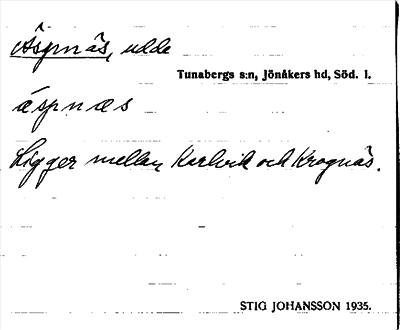 Äspnäs, udde
Tunabergs s:n, Jönåkers hd, Söd. l.
ä́spnæs
Ligger mellan Karlvik och Krognäs.
STIG JOHANSSON 1935.